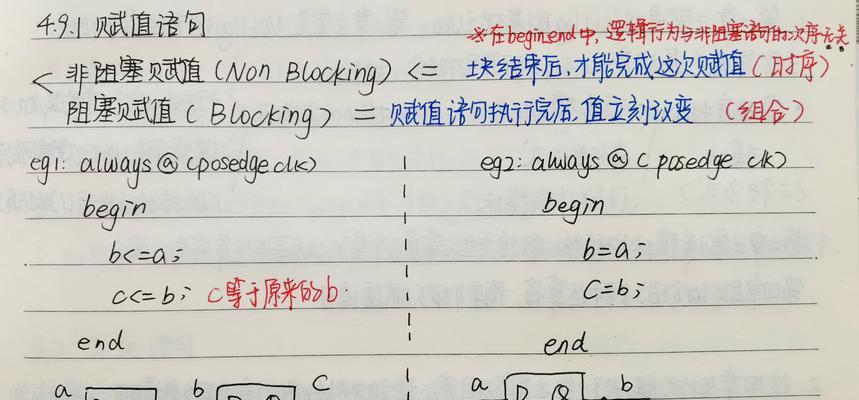 4.9.1 赋值语句
※在begin end中,逻辑行为与非阻塞语句的次序无关
< 非阻塞赋值(Non Blocking) <= 块结束后,才能完成这次赋值(时序)
阻塞赋值(Blocking) = 赋值语句执行完后,值立刻改变 (组合)
eg1: always @ (posedge clk)
begin
b<=a;
c<=b; c等于原来的b.
end
a b C
D Q
eg2: always @ (posedge clk)
begin
b=a;
C=b;
end
a b
D Q